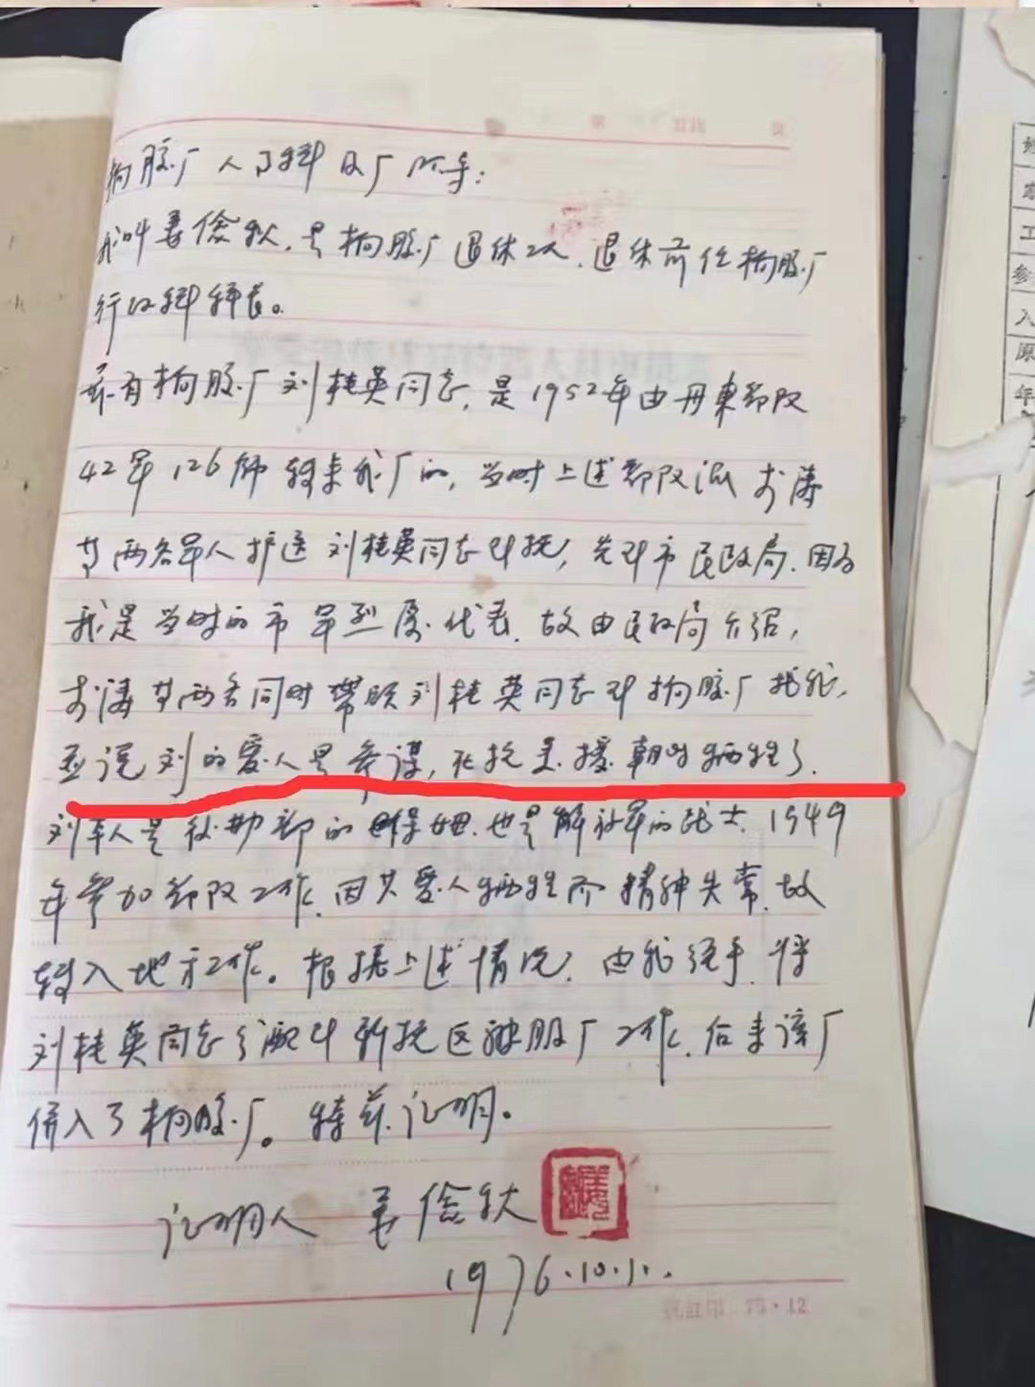 橡胶厂人事科及厂领导:
我叫姜俭秋,是橡胶厂退休工人,退休前任橡胶厂
行政科科长。
兹有橡胶厂刘桂英同志,是1952年由丹东部队
42军126师转来我厂的,当时上述部队派于涛
等两名军人护送刘桂英同志到抚,先到市民政局,因为
我是当时的市军烈属代表,故由民政局介绍,
于涛等两名同时带领刘桂英同志到橡胶厂找我,
并说刘的爱人是参谋,在抗美援朝时牺牲了.
刘本人是后勤部的保姆.也是解放军的战士,1949
年参加部队工作,因其爱人牺牲而精神失常,故
转入地方工作。根据上述情况,由我经手,将
刘桂英同志分配到新抚区被服厂工作,后来该厂
併入了橡胶厂。特兹证明。
证明人 姜俭秋
1976.10.1
75·12
工
参
入
原
年